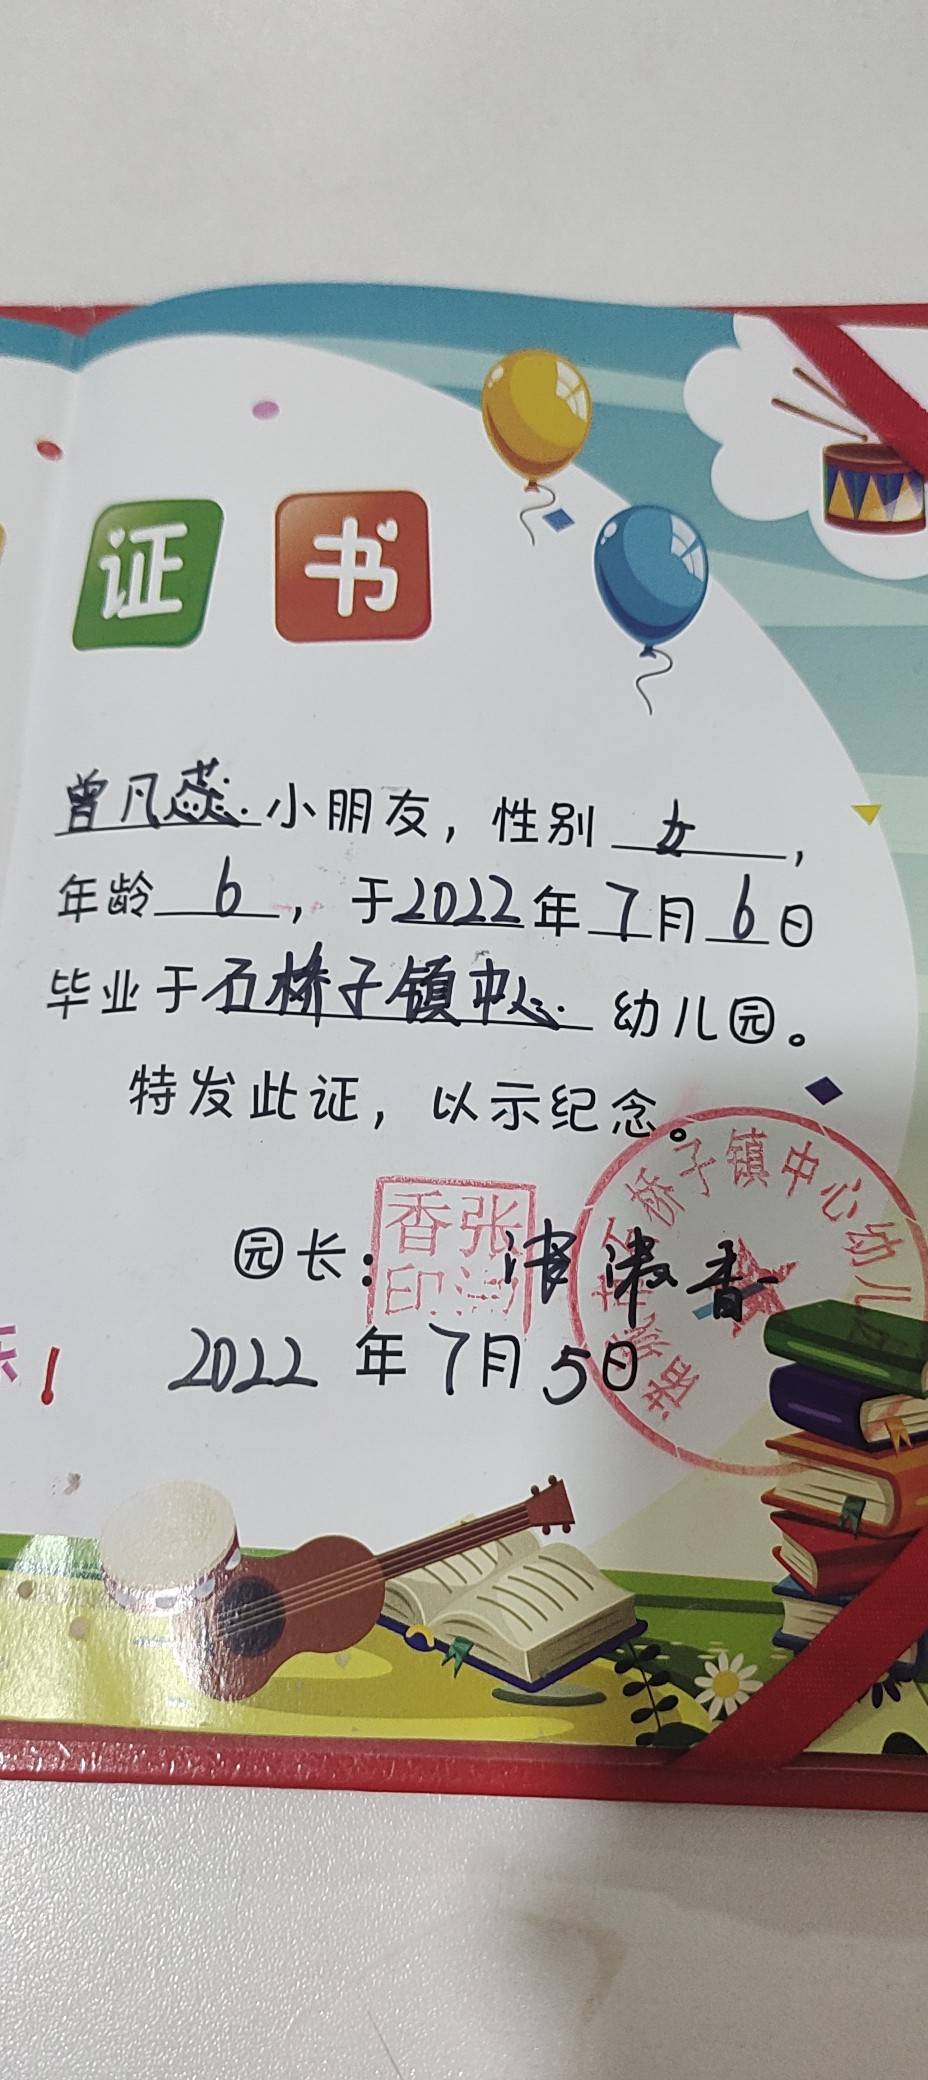 证书
曾凡蕊小朋友，性别女，
年龄6，于2022年7月6日
毕业于石桥子镇中心幼儿园。
特发此证，以示纪念。
园长：张淑香
张淑香印
桥子镇中心幼儿
2022年7月5日
！